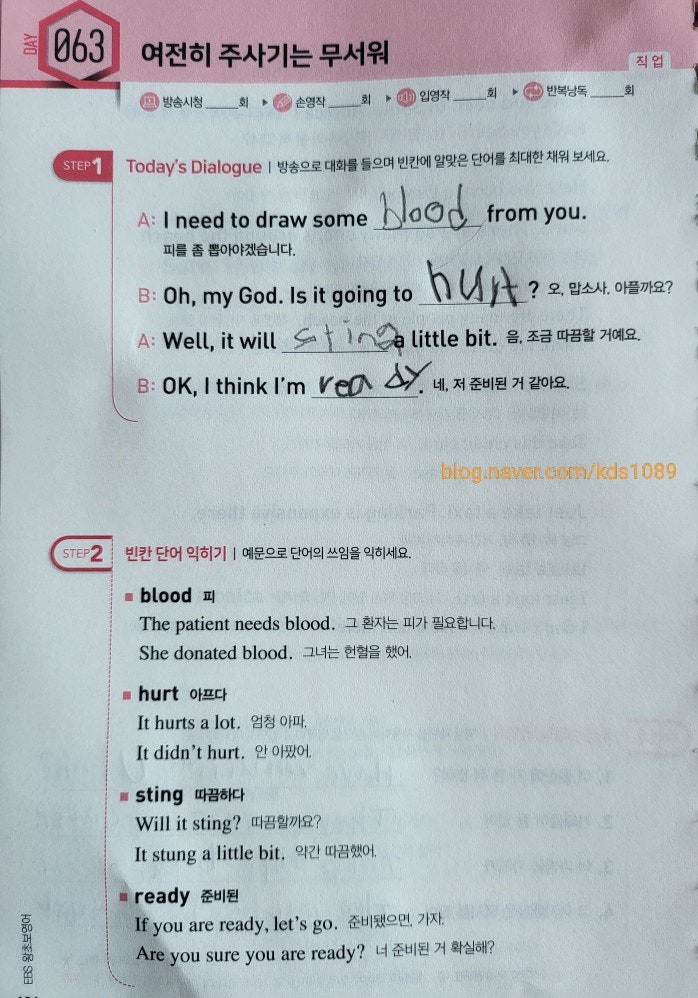 DAY 063 여전히 주사기는 무서워
직업
방송시청 _____회 ▶ 손영작 _____회 ▶ 입영작 _____회 ▶ 반복낭독 _____회
STEP 1 Today's Dialogue | 방송으로 대화를 들으며 빈칸에 알맞은 단어를 최대한 채워 보세요.
A: I need to draw some blood from you.
피를 좀 뽑아야겠습니다.
B: Oh, my God. Is it going to hurt? 오, 맙소사. 아플까요?
A: Well, it will sting a little bit. 음, 조금 따끔할 거예요.
B: OK, I think I'm ready. 네, 저 준비된 거 같아요.
blog.naver.com/kds1089
STEP 2 빈칸 단어 익히기 | 예문으로 단어의 쓰임을 익히세요.
■ blood 피
The patient needs blood. 그 환자는 피가 필요합니다.
She donated blood. 그녀는 헌혈을 했어.
■ hurt 아프다
It hurts a lot. 엄청 아파.
It didn't hurt. 안 아팠어.
■ sting 따끔하다
Will it sting? 따끔할까요?
It stung a little bit. 약간 따끔했어.
■ ready 준비된
If you are ready, let's go. 준비됐으면, 가자.
Are you sure you are ready? 너 준비된 거 확실해?
EBS 왕초보영어